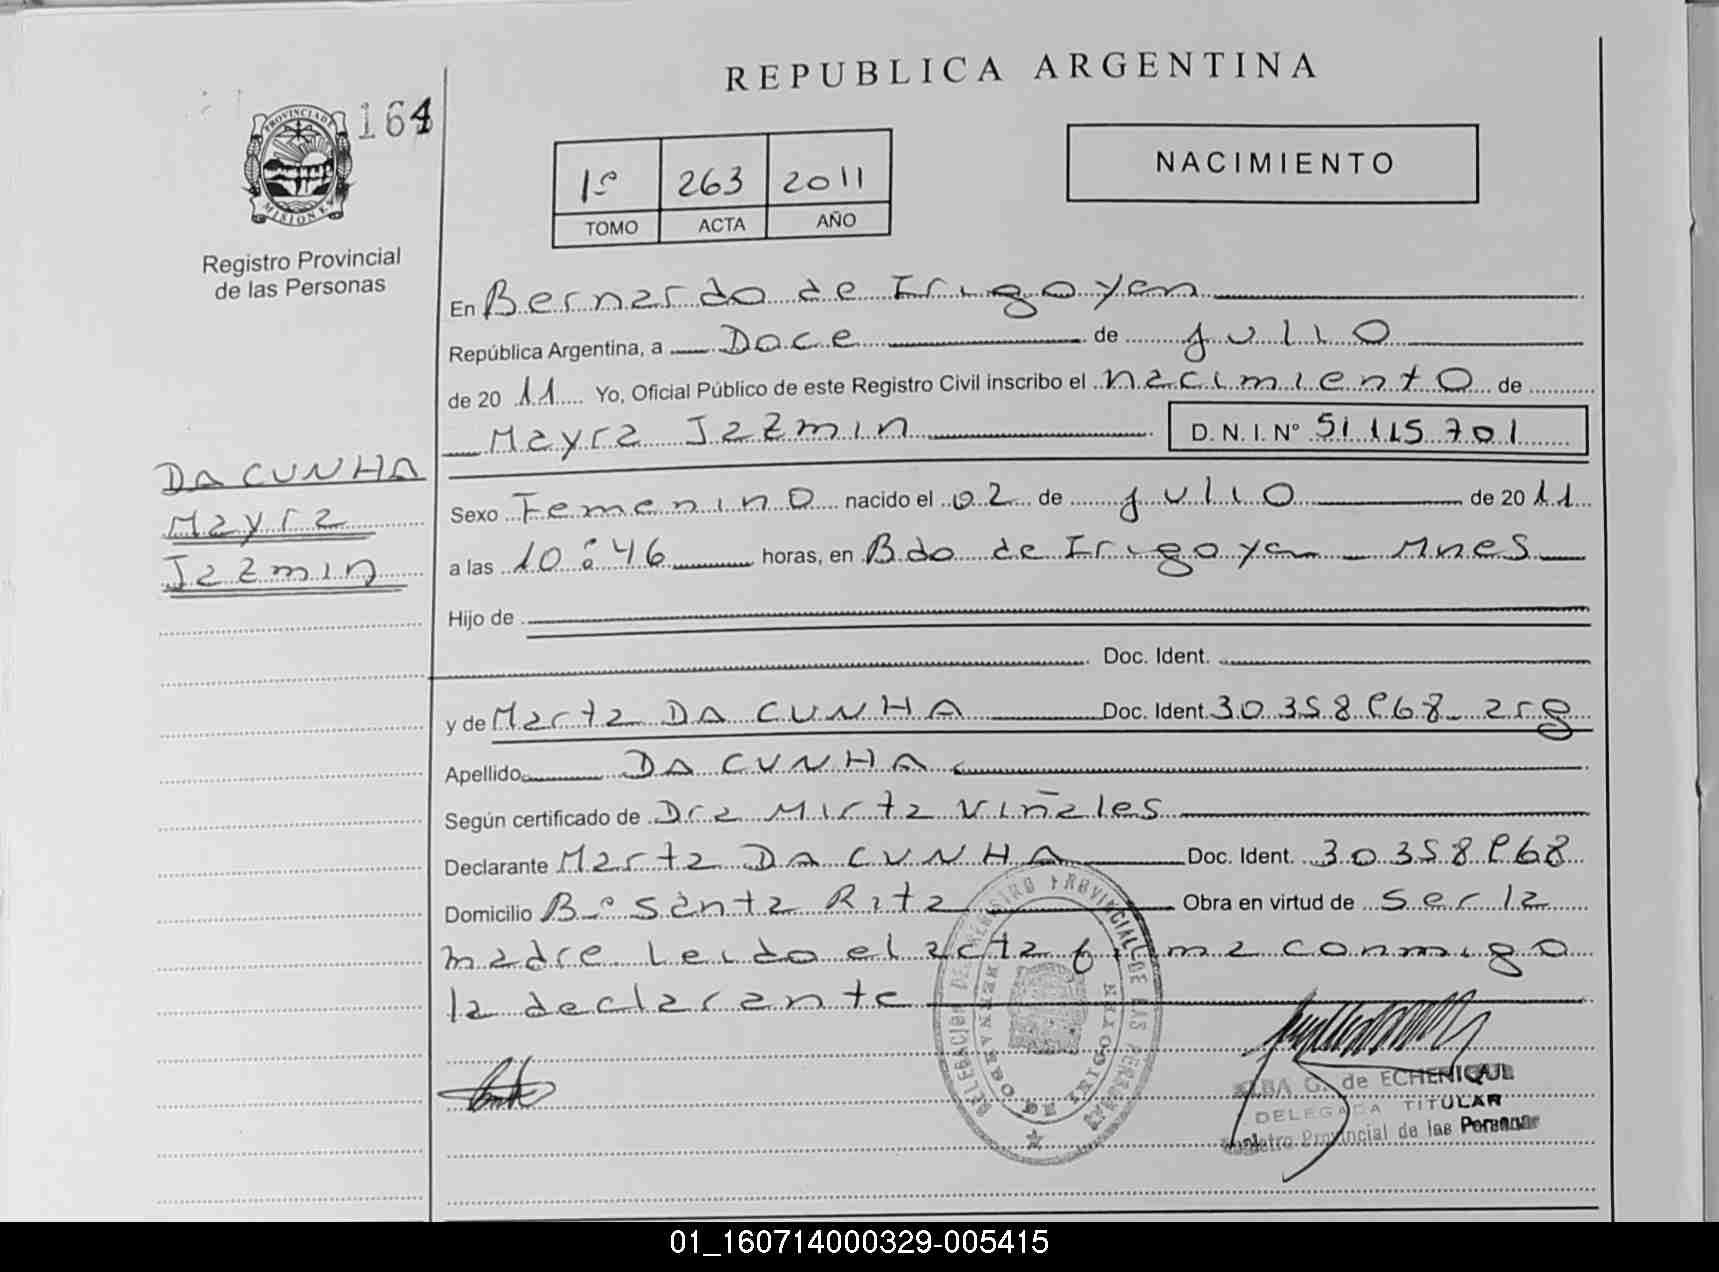 REPUBLICA ARGENTINA
164
PROVINCIA DE MISIONES
Registro Provincial
de las Personas
1º 263 2011
TOMO ACTA AÑO
NACIMIENTO
En Bernardo de Irigoyen
República Argentina, a Doce de Julio
de 20 11 Yo, Oficial Público de este Registro Civil inscribo el nacimiento de
Mayra Jazmin D.N.I. Nº 51.115.701
DA CUNHA
Mayra
Jazmin
Sexo Femenino nacido el 02 de Julio de 20 11
a las 10:46 horas, en Bdo de Irigoyen Mnes
Hijo de
Doc. Ident.
y de Marta DA CUNHA Doc. Ident. 30.358.968 arg
Apellido DA CUNHA
Según certificado de Dra Mirta Viñales
Declarante Marta DA CUNHA Doc. Ident. 30.358.968
Domicilio Bº Santa Rita Obra en virtud de ser la
madre. Leido el acta firma conmigo
la declarante
DELEGACIÓN DEL REGISTRO PROVINCIAL DE LAS PERSONAS
BERNARDO DE IRIGOYEN
ALBA G. de ECHENIQUE
DELEGADA TITULAR
Registro Provincial de las Personas
01_160714000329-005415